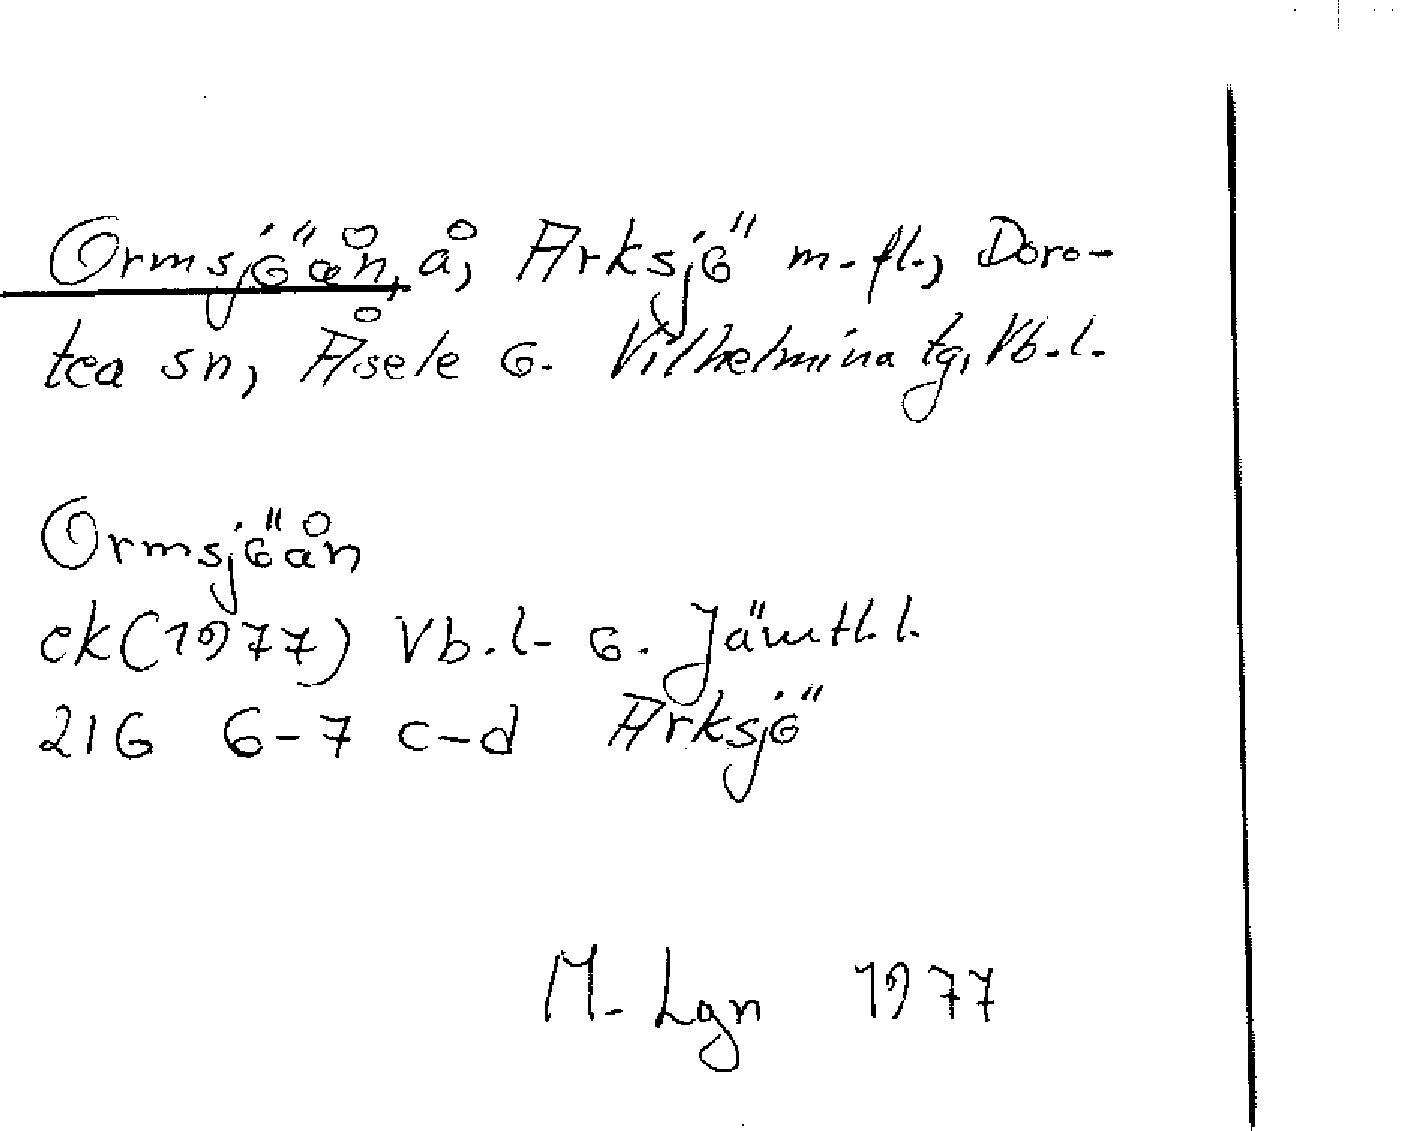 Ormsjöån, å, Arksjö m.fl., Doro-
tea sn, Åsele o. Vilhelmina tg, Vb.l.
Ormsjöån
ek(1977) Vb.l- o. Jämtl.l.
21G 6-7 c-d Arksjö
M. Lgn 1977